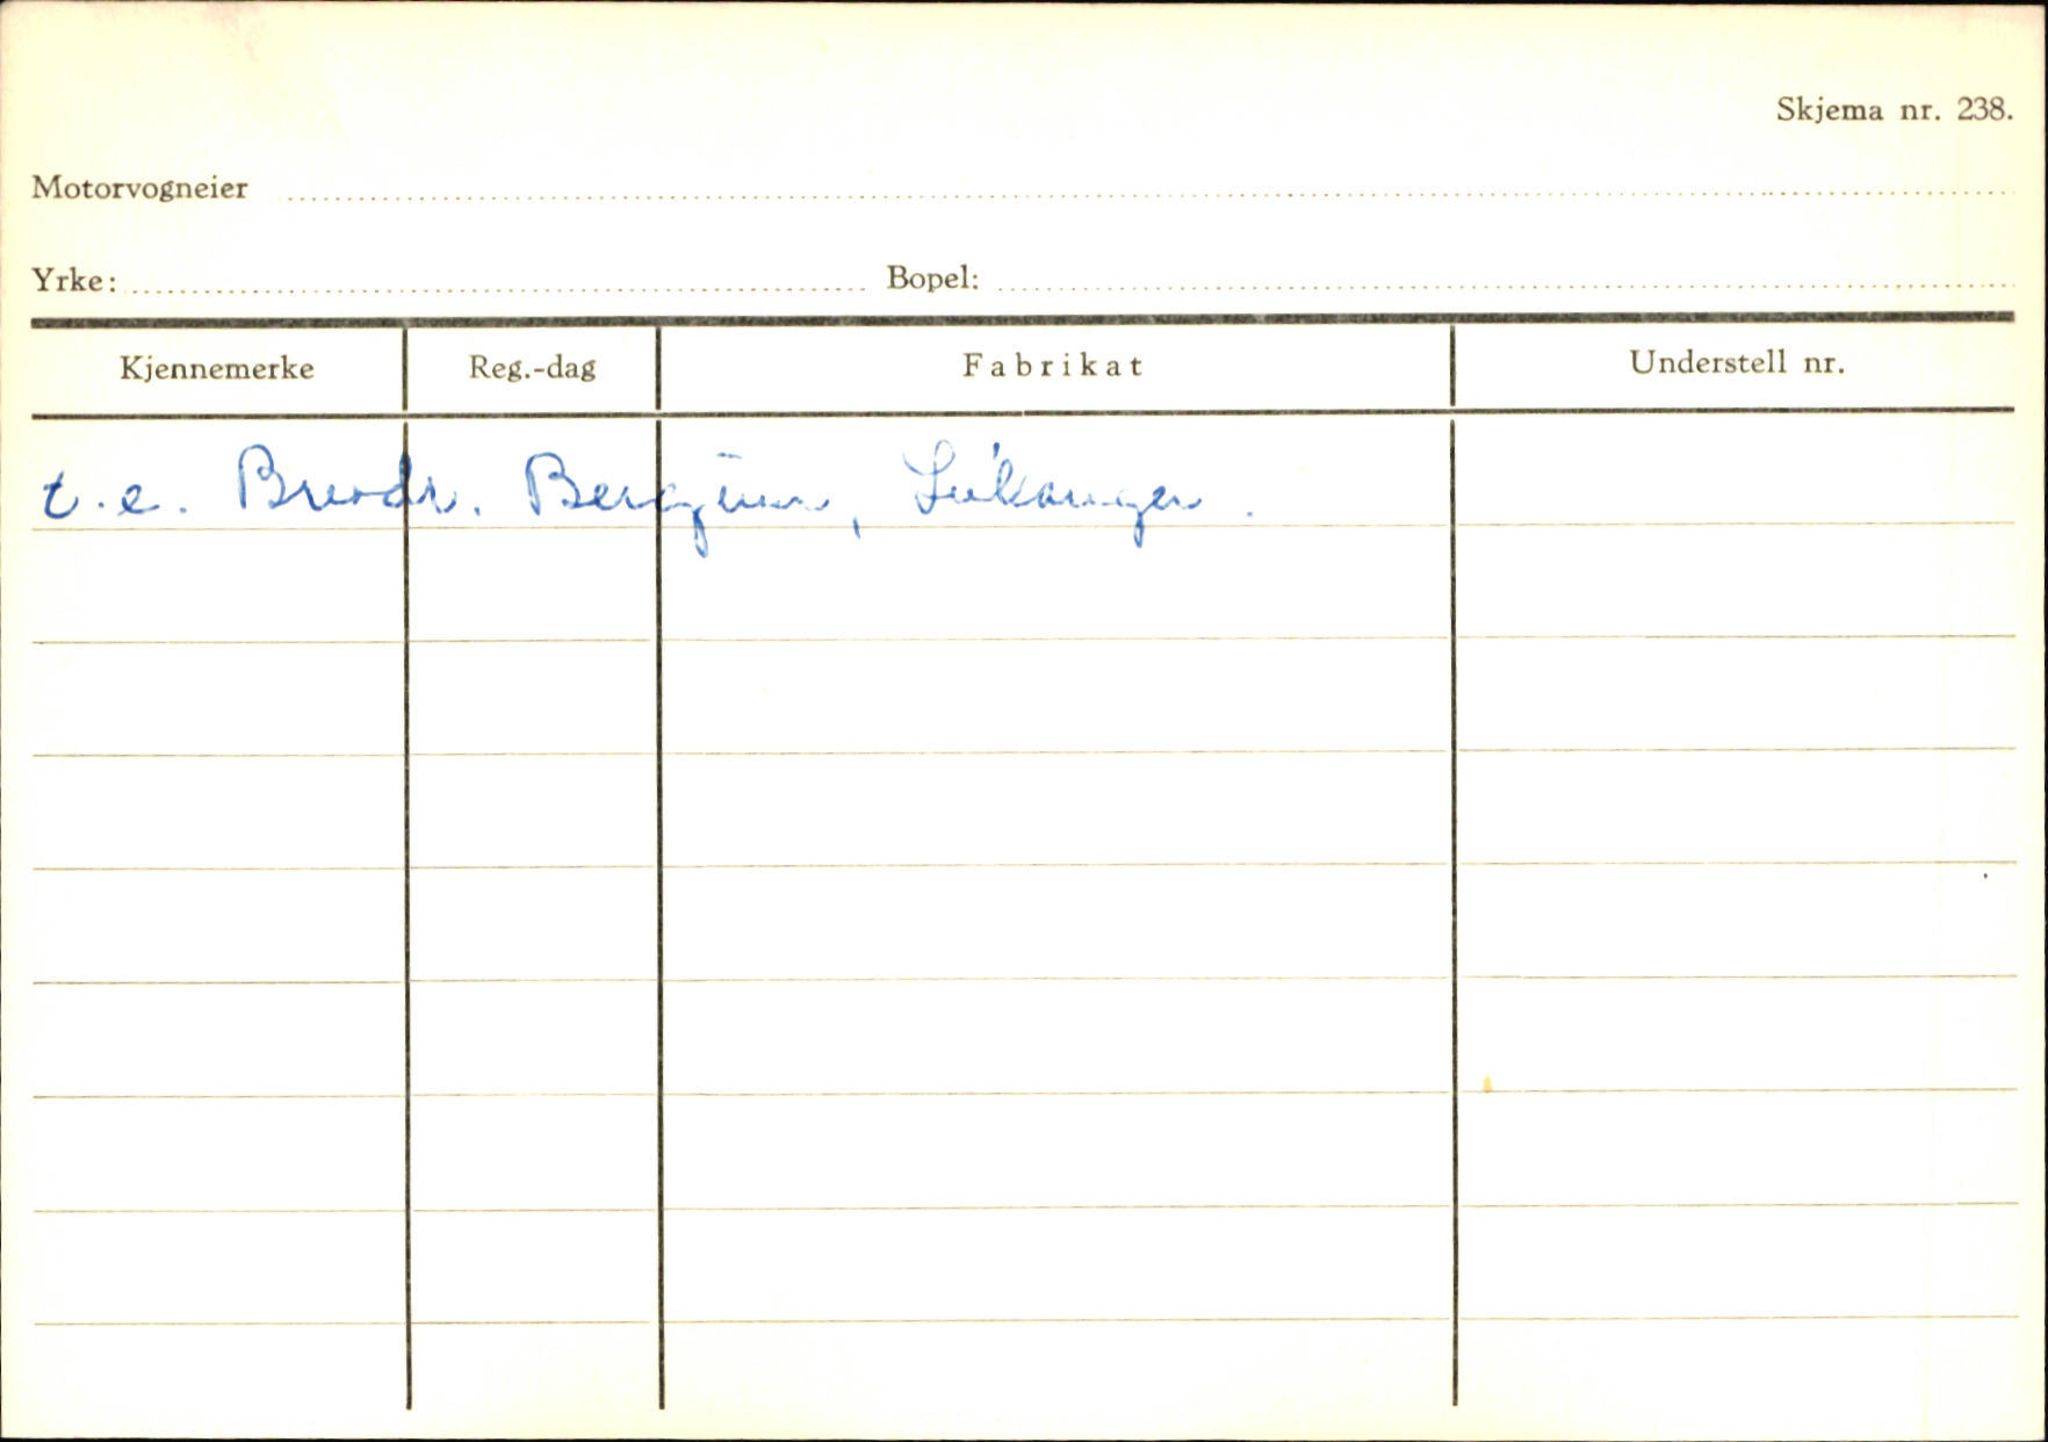 Skjema nr. 238.
Motorvogneier
Yrke: Bopel:
Kjennemerke Reg.-dag Fabrikat Understell nr.
t.e. Brødr. Bergum, Leikanger.